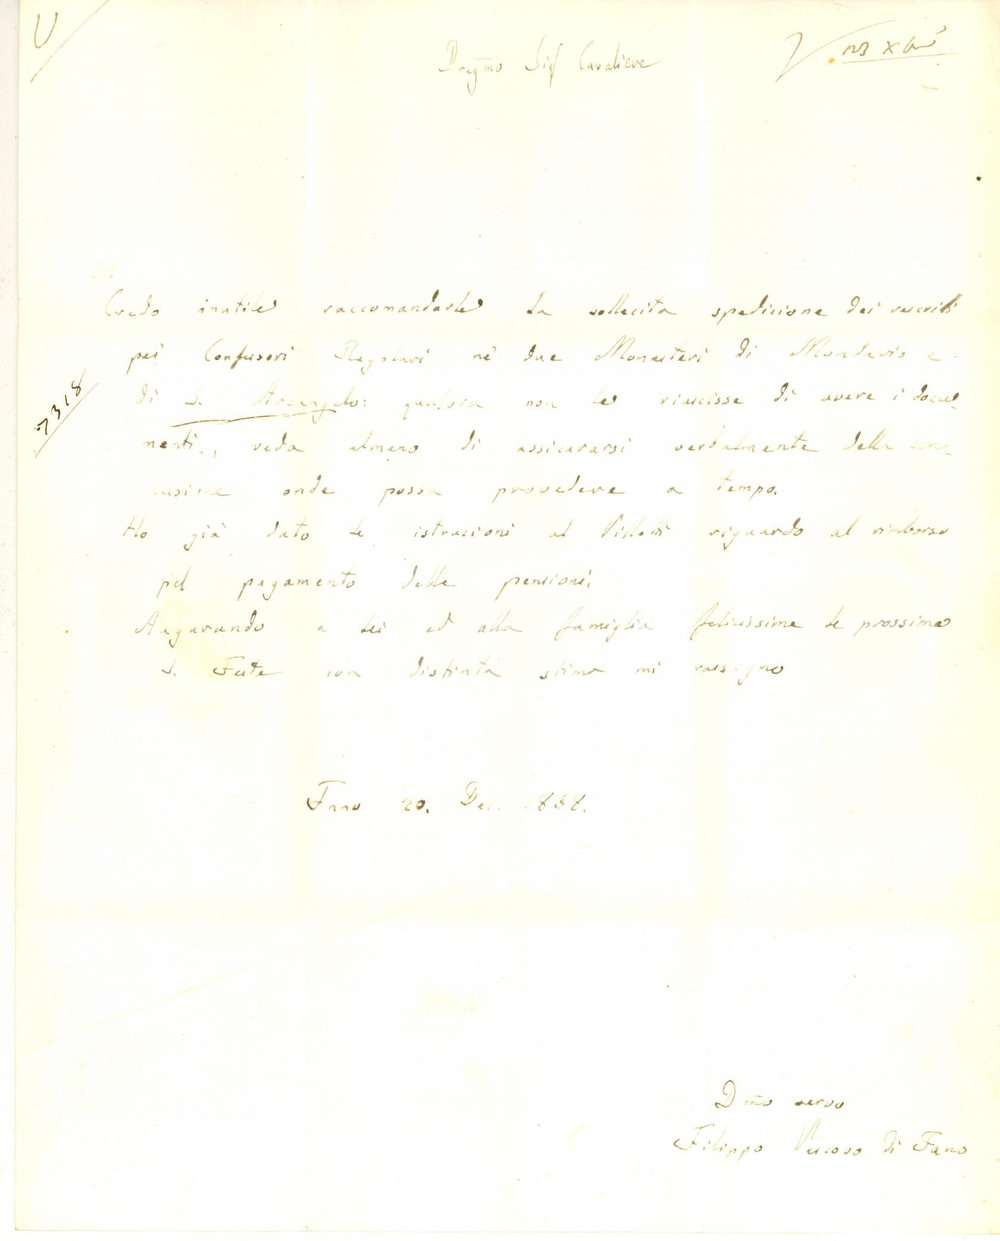 Preg̃mo Sig Cavaliere
23 Xbre
7318
Credo inutile raccomandarle la sollecita spedizione dei rescritti
pei Confessori Regolari ne' due Monasteri di Mondavio e
di S. Arcangelo: qualora non le riuscisse di avere i docu-
menti, veda almeno di assicurarsi verbalmente della con-
cusione onde possa provedere a tempo.
Ho già dato le istruzioni al riguardo al rimborso
pel pagamento delle pensioni.
Augurando a Lei ed alla famiglia felicissime le prossime
S. Feste con distinta stima mi rassegno
Fano 20. Dec. 1838.
Dm̃o servo
Filippo Vescovo di Fano